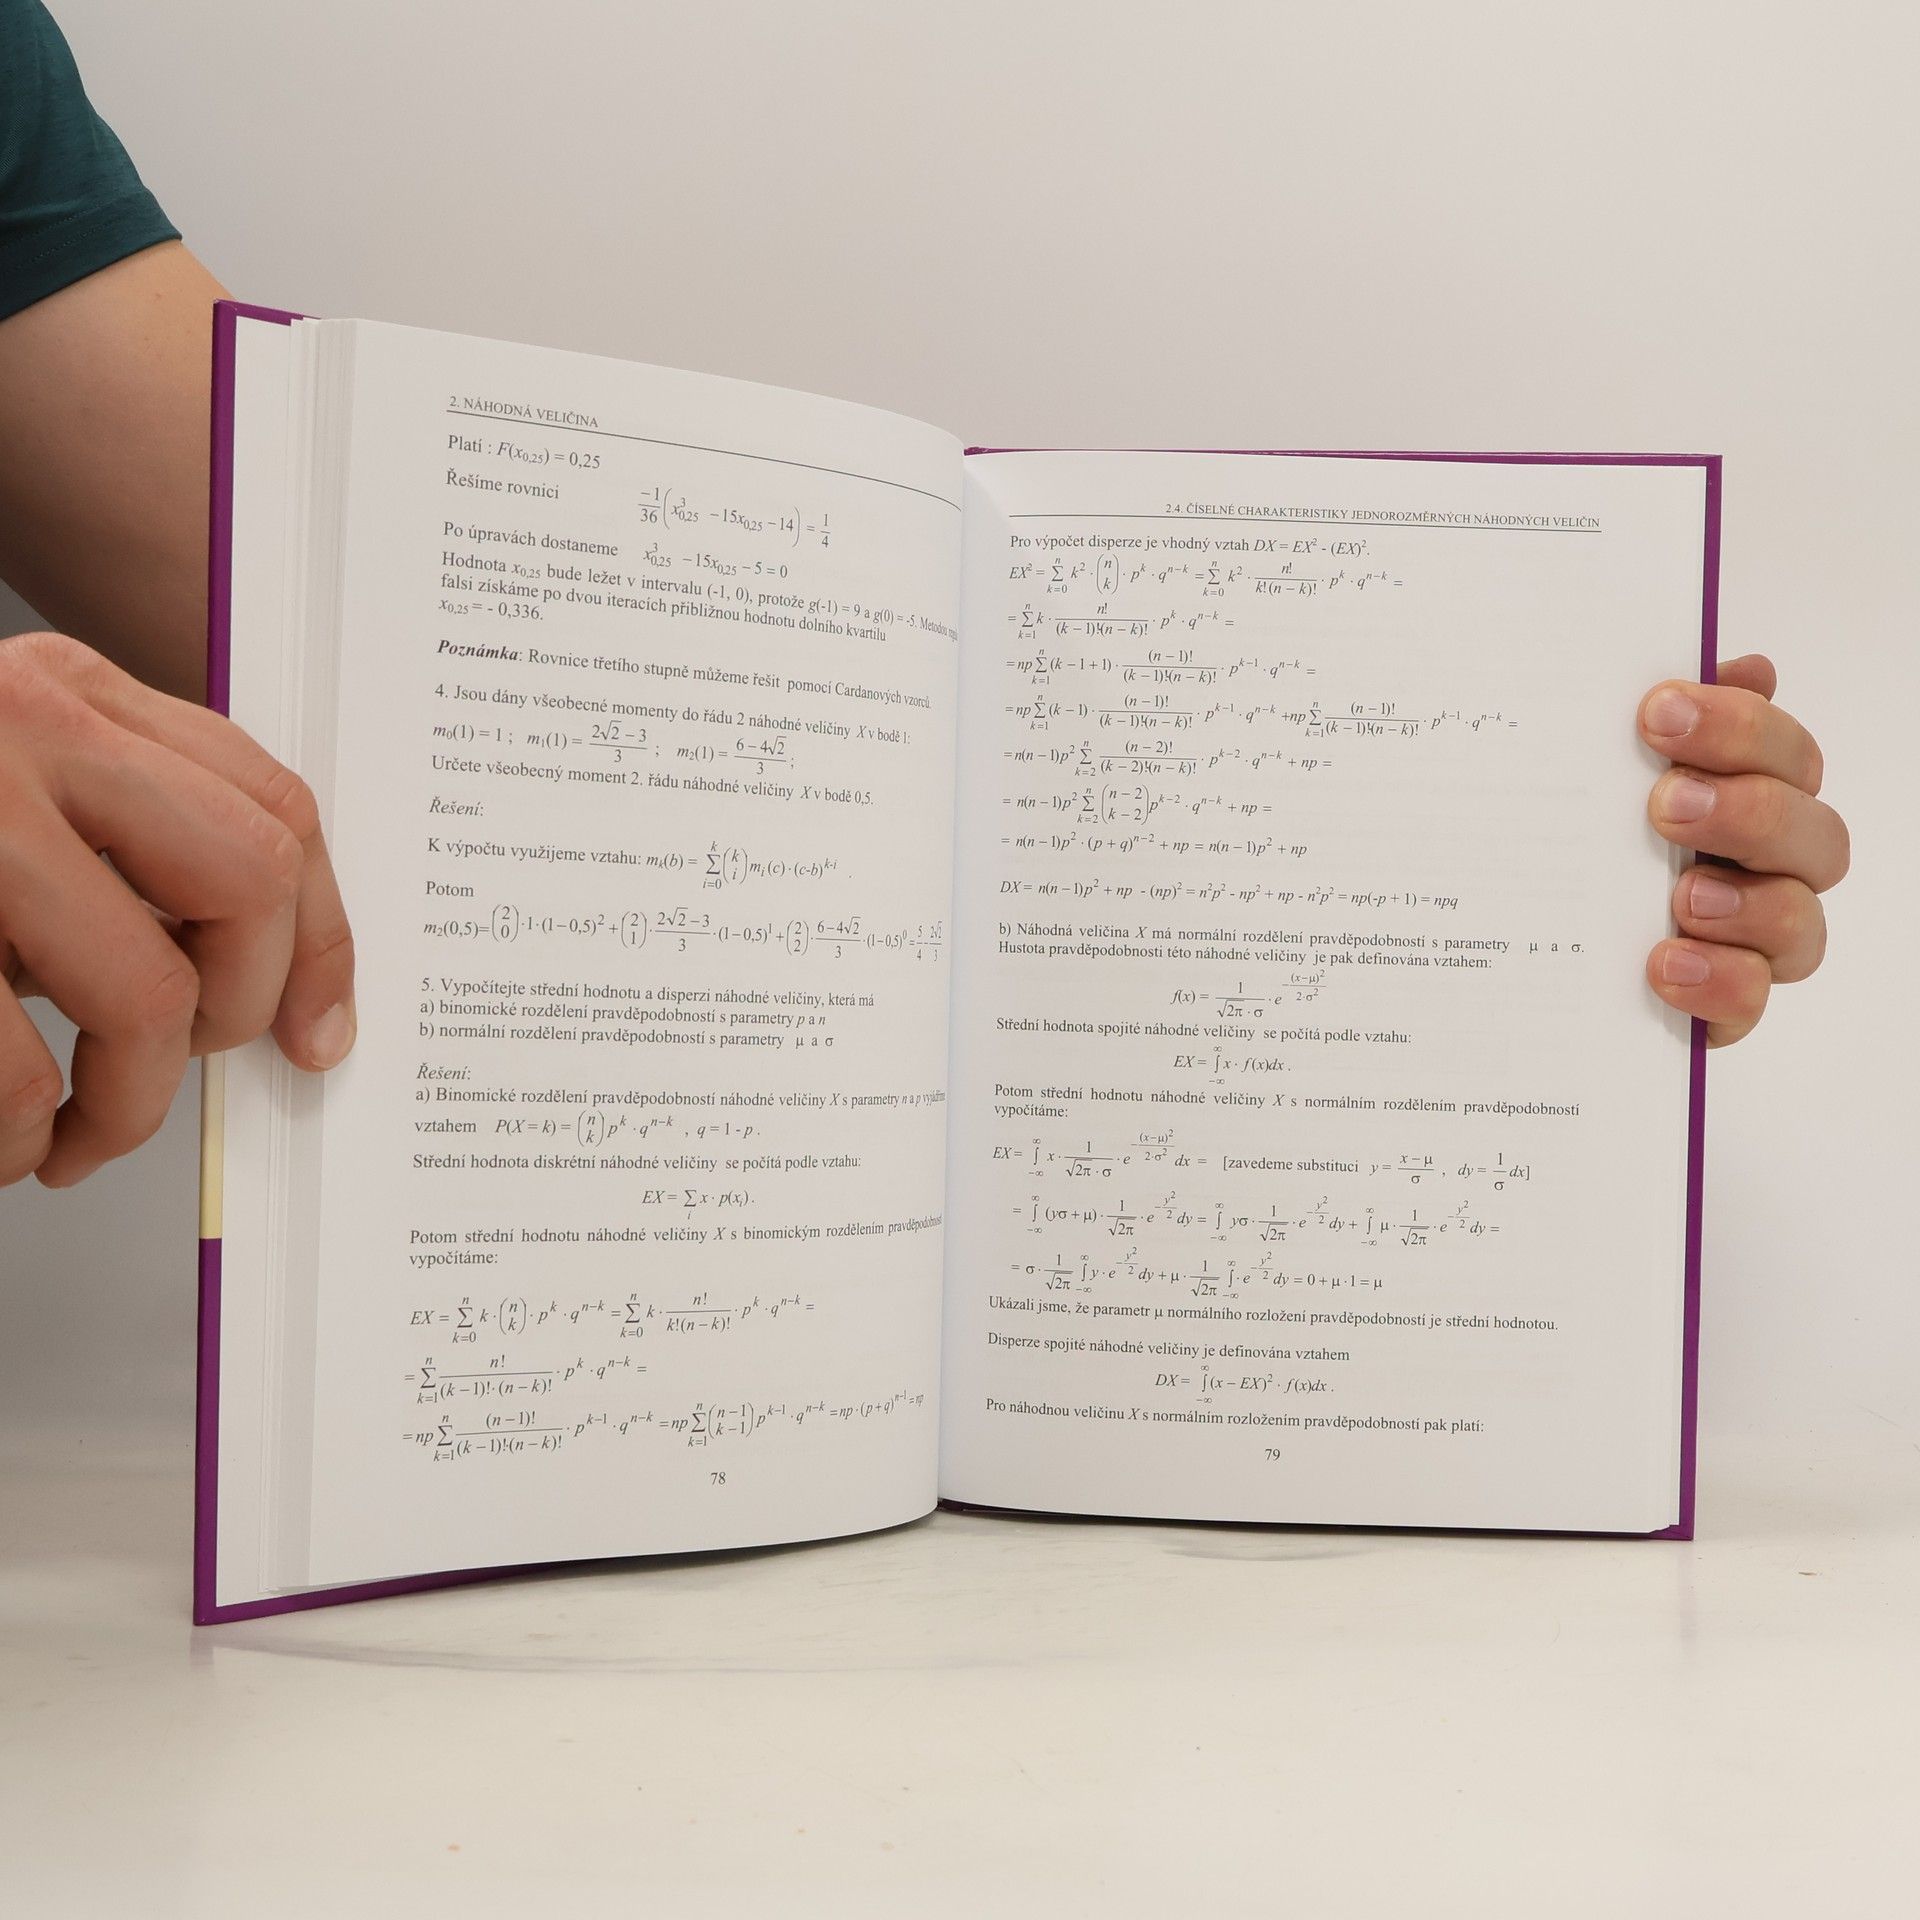 2. NÁHODNÁ VELIČINA
Platí : F(x0,25) = 0,25
Řešíme rovnici −1/36 (x³0,25 − 15x0,25 − 14) = 1/4
Po úpravách dostaneme x³0,25 − 15x0,25 − 5 = 0
Hodnota x0,25 bude ležet v intervalu (-1, 0), protože g(-1) = 9 a g(0) = -5. Metodou
falsi získáme po dvou iteracích přibližnou hodnotu dolního kvartilu
x0,25 = - 0,336.
Poznámka: Rovnice třetího stupně můžeme řešit pomocí Cardanových vzorců.
4. Jsou dány všeobecné momenty do řádu 2 náhodné veličiny X v bodě 1:
m0(1) = 1 ; m1(1) = (2√2 − 3)/3 ; m2(1) = (6 − 4√2)/3 ;
Určete všeobecný moment 2. řádu náhodné veličiny X v bodě 0,5.
Řešení:
K výpočtu využijeme vztahu: mk(b) = ∑_{i=0}^{k} (k i) mi (c) · (c-b)^{k-i} .
Potom
m2(0,5)= (2 0) ·1·(1−0,5)² + (2 1) · (2√2 −3)/3 ·(1−0,5)¹ + (2 2) · (6−4√2)/3 ·(1−0,5)⁰ = 5/4 − 2√2/3
5. Vypočítejte střední hodnotu a disperzi náhodné veličiny, která má
a) binomické rozdělení pravděpodobností s parametry p a n
b) normální rozdělení pravděpodobností s parametry μ a σ
Řešení:
a) Binomické rozdělení pravděpodobností náhodné veličiny X s parametry n a p
vztahem P(X = k) = (n k) p^k · q^{n−k} , q = 1 - p .
Střední hodnota diskrétní náhodné veličiny se počítá podle vztahu:
EX = ∑_i x · p(xi) .
Potom střední hodnotu náhodné veličiny X s binomickým rozdělením pravděpodobností
vypočítáme:
EX = ∑_{k=0}^{n} k · (n k) · p^k · q^{n−k} = ∑_{k=0}^{n} k · n!/(k!(n − k)!) · p^k · q^{n−k} =
= ∑_{k=1}^{n} n!/((k − 1)!·(n − k)!) · p^k · q^{n−k} =
= np ∑_{k=1}^{n} (n − 1)!/((k − 1)!·(n − k)!) · p^{k−1} · q^{n−k} = np ∑_{k=1}^{n} (n − 1 k − 1) p^{k−1} · q^{n−k} = np · (p + q)^{n−1} = np
78
2.4. ČÍSELNÉ CHARAKTERISTIKY JEDNOROZMĚRNÝCH NÁHODNÝCH VELIČIN
Pro výpočet disperze je vhodný vztah DX = EX² - (EX)².
EX² = ∑_{k=0}^{n} k² · (n k) · p^k · q^{n−k} = ∑_{k=0}^{n} k² · n!/(k!(n − k)!) · p^k · q^{n−k} =
= ∑_{k=1}^{n} k · n!/((k − 1)!(n − k)!) · p^k · q^{n−k} =
= np ∑_{k=1}^{n} (k − 1 + 1) · (n − 1)!/((k − 1)!(n − k)!) · p^{k−1} · q^{n−k} =
= np ∑_{k=1}^{n} (k − 1) · (n − 1)!/((k − 1)!(n − k)!) · p^{k−1} · q^{n−k} + np ∑_{k=1}^{n} (n − 1)!/((k − 1)!(n − k)!) · p^{k−1} · q^{n−k} =
= n(n − 1)p² ∑_{k=2}^{n} (n − 2)!/((k − 2)!(n − k)!) · p^{k−2} · q^{n−k} + np =
= n(n − 1)p² ∑_{k=2}^{n} (n − 2 k − 2) p^{k−2} · q^{n−k} + np =
= n(n − 1)p² · (p + q)^{n−2} + np = n(n − 1)p² + np
DX = n(n − 1)p² + np - (np)² = n²p² - np² + np - n²p² = np(-p + 1) = npq
b) Náhodná veličina X má normální rozdělení pravděpodobností s parametry μ a σ.
Hustota pravděpodobnosti této náhodné veličiny je pak definována vztahem:
f(x) = 1/(√2π · σ) · e^{−(x−μ)²/(2·σ²)}
Střední hodnota spojité náhodné veličiny se počítá podle vztahu:
EX = ∫_{−∞}^{∞} x · f(x)dx .
Potom střední hodnotu náhodné veličiny X s normálním rozdělením pravděpodobností
vypočítáme:
EX = ∫_{−∞}^{∞} x · 1/(√2π · σ) · e^{−(x−μ)²/(2·σ²)} dx = [zavedeme substituci y = (x − μ)/σ , dy = 1/σ dx]
= ∫_{−∞}^{∞} (yσ + μ) · 1/√2π · e^{−y²/2} dy = ∫_{−∞}^{∞} yσ · 1/√2π · e^{−y²/2} dy + ∫_{−∞}^{∞} μ · 1/√2π · e^{−y²/2} dy =
= σ · 1/√2π ∫_{−∞}^{∞} y · e^{−y²/2} dy + μ · 1/√2π ∫_{−∞}^{∞} · e^{−y²/2} dy = 0 + μ · 1 = μ
Ukázali jsme, že parametr μ normálního rozložení pravděpodobností je střední hodnotou.
Disperze spojité náhodné veličiny je definována vztahem
DX = ∫_{−∞}^{∞} (x − EX)² · f(x)dx .
Pro náhodnou veličinu X s normálním rozložením pravděpodobností pak platí:
79